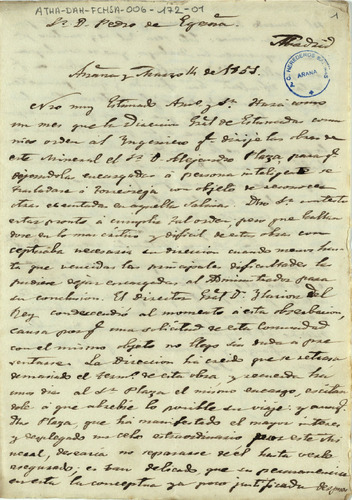 ATHA-DAH-FCMSA-006-172-01
1
Sr. D. Pedro de Egaña.
Madrid
Añana y Marzo 14 de 1855.
A.C. HEREDEROS
AÑANA
Muy Estimado Amº y Sr. Hará como
un mes que la Dirección Gral de Estancadas comu
nicó orden al Ingeniero qe dirije las obras de
este Mineral el Sr. D. Alejandro Plaza para qe
dejandolas encargadas á persona inteligente se
trasladase á con objeto de reconocer
otras en aquella Salina. Dho Sr. contestó
estar pronto á cumplir tal orden, pero que hallan
dose en lo mas critico y dificil de esta obra con
ceptuaba necesaria su direccion cuando menos has
ta que vencidas las principales dificultades le
pudiese dejar encargada al Administrador para
su conclusion. El director Gral D.
Rey condescendió al momento á esta observacion,
causa por qe una solicitud de esta Comunidad
con el mismo objeto no llegó sin duda a pre
sentarse. La Direccion ha creido que se retrasa
demasiado el de esta obra y recuerda ha
unos dias al Sr. Plaza el mismo encargo, escitan
dole á que abrevie lo posible su viaje: y aunqe
Dho Plaza, que ha manifestado el mayor interes
y desplegado un celo estraordinario por este Mi
neral, desearia no separarse de el hasta verlo
asegurado, es tan delicado que su permanencia
en esta la conceptua ya poco justificada despues